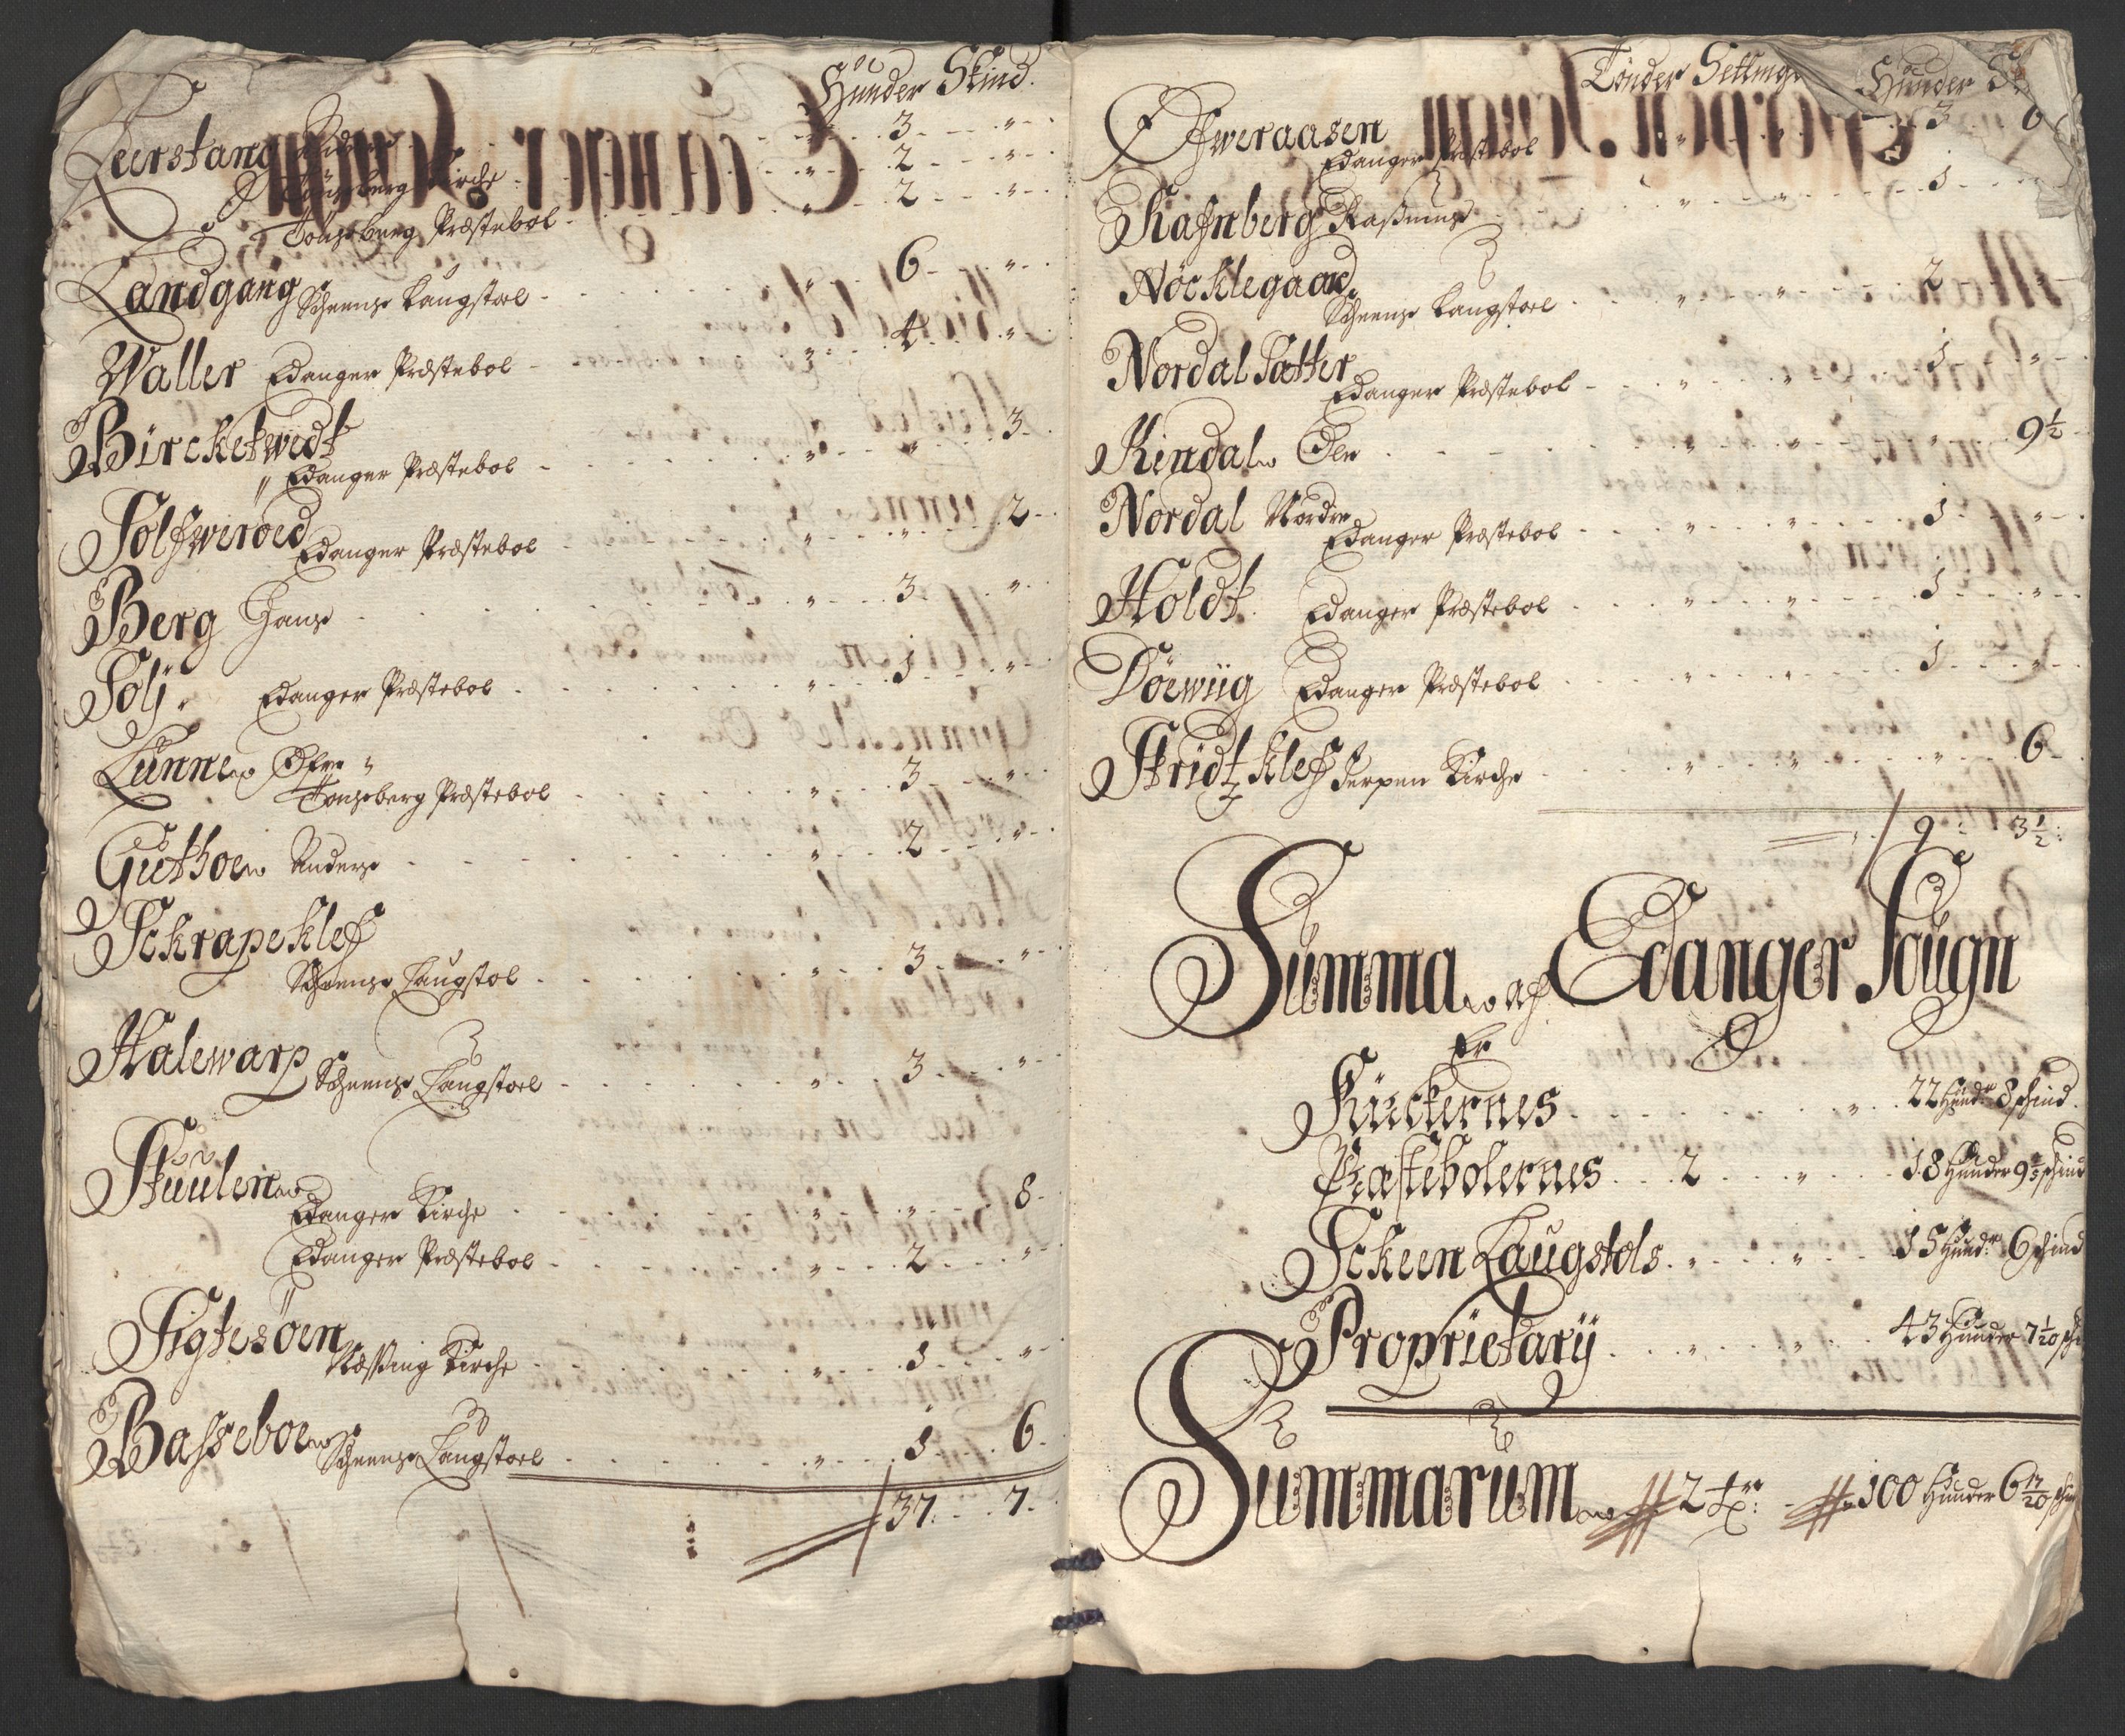 Hunder Skind.
Leerstang 3 "
Tonsberg Kirche 2 "
Tonsberg Præstebol 2 "
Landgang Scheens Laugstoel 6 "
Waller Edanger Præstebol 4 "
Bircketwedt
Edanger Præstebol " 3
Solfweroed Edanger Præstebol " 2
Berg Hans 3 "
Solj. Edanger Præstebol 1 "
Lunne Øfre
Tonsberg Præstebol 3 "
Guthoe Anders 2 "
Sckrapeklef
Scheens Laugstol 3 "
Halewarp Scheens Laugstoel 3 "
Stuulen
Edanger Kirche " 8
Edanger Præstebol 2 "
Figtesöen Næssing Kirche 1 "
Basseboe Scheens Laugstoel 1 6
37. 7.
Tönder Settinger Hunder
Ofweraasen
Edanger Præstebol 3 6
Rafnberg Rasmus 1
Nöcklegaard
Scheens Laugstoel 2 "
Nordal Sætter
Edanger Præstebol 1 "
Kindal Ole " 9½
Nordal Nordre
Edanger Præstebol 1 "
Holdt. Edanger Præstebol 1 "
Döewiig Edanger Præstebol 1 "
Stridtzklef Gerpen Kirche " 6
9 3½
Summa af Edanger Sougn
Er
Kirckernes " 22 Hundr 8 skind
Præstebolernes 2 " 18 Hunder 9 skind
Sckeen Laugstols " " 15 Hundr 6 skind
Proprietarij " " 43 Hunder 7 1/20
Summarum 2 tr: 100 Hunder 6 17/20